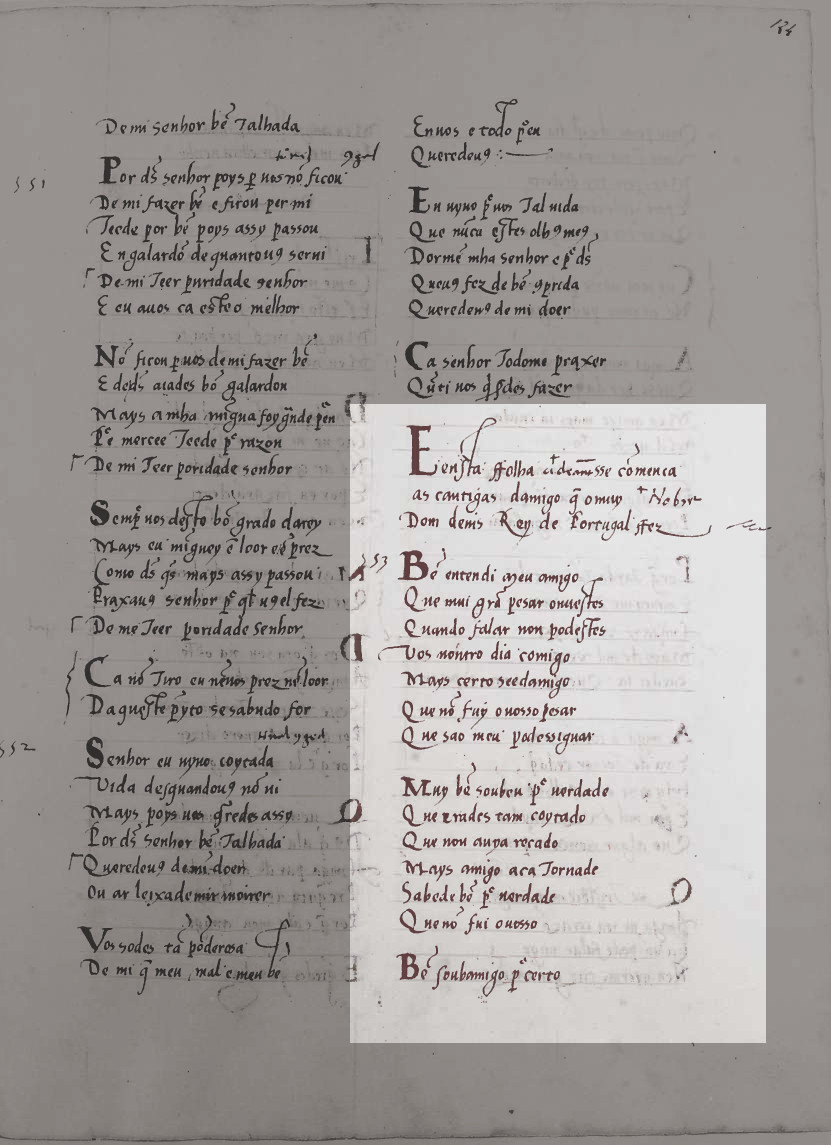 De mi senhor bẽ Talhada
551
Por ds̃ senhor poys ꝑ uos nõ ficou
De mi fazer bẽ e ficou per mi
Teede por bẽ poys assy passou
En galardõ de quantoug serui
De mi Teer puridade senhor
E eu auos ca esteo melhor
Nõ ficou ꝑ uos de mi fazer bẽ
E deds̃ aiades bõ galardon
Mays a mha migua foy gñde
Teede razon
De mi Teer poridade senhor
Semp̃ uos desto bõ grado darey
Mays eu miguey ẽ loor prez
Como ds̃ q̃s mays assy passou
Praxaug senhor
De me Teer poridade senhor
Ca nõ Tiro eu nẽuos prez nẽ loor
Daqueste p̃yto se sabudo for
552
Senhor eu uyuo coytada
Vida desquandoug nõ ui
Mays poys uos q̃redes assy
Por ds̃ senhor bẽ Talhada
Queredeug de mi doer
ou ar leixademir moirer
Vos sodes tã poderosa
De mi q̃ meu mal e meu bẽ
En uos e todo
Queredeug
En uyuo Tal uida
Que nũca estes olhꝯ meꝯ
Dormẽ mha senhor
Queug fez de bẽ ꝯprida
Queredeug de mi doer
Ca senhor Todome praxer
uos fazer
E en esta ffolha sse começa
as cantigas damigo q̃ o muy Nobre
Dom denis Rey de Portugal ffez
553
Bẽ entendi meu amigo
Que mui grã pesar ouuestes
Quando falar non podestes
Vos noutro dia comigo
Mays certo seedamigo
Que nõ fuy o uosso pesar
Que sao meu podessiguar
Muy bẽ soubeu uerdade
Que erades tam coytado
Que non auya recado
Mays amigo aca Tornade
Sabede bẽ uerdade
Que nõ fui ouosso
Bẽ soubamigo certo